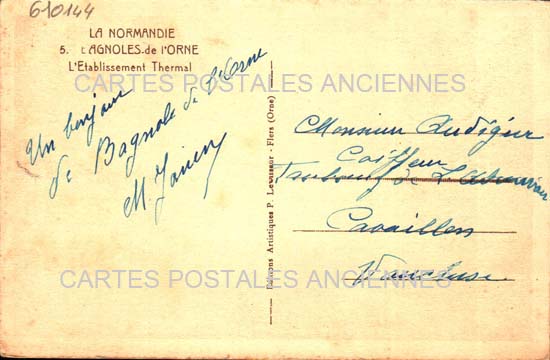 610144
LA NORMANDIE
5. BAGNOLES-de l'ORNE
L'Etablissement Thermal
CARTES POSTALES ANCIENNES
Un bonjour
de Bagnole de l'Orne
M.
Editions Artistiques P. Levasseur - Flers (Orne)
Monsieur Audigier
Coiffeur
Faubourg de
Cavaillon
Vaucluse
CARTES POSTALES ANCIENNES